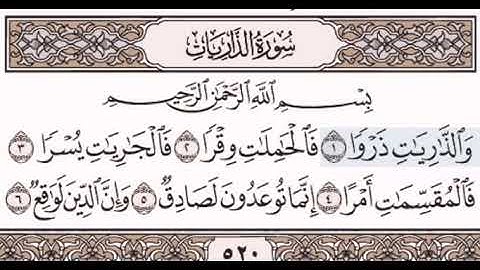 سُورَةُ الذَّارِيَاتِ
بِسْمِ ٱللَّهِ ٱلرَّحْمَٰنِ ٱلرَّحِيمِ
وَٱلذَّٰرِيَٰتِ ذَرْوًا ١ فَٱلْحَٰمِلَٰتِ وِقْرًا ٢ فَٱلْجَٰرِيَٰتِ يُسْرًا ٣
فَٱلْمُقَسِّمَٰتِ أَمْرًا ٤ إِنَّمَا تُوعَدُونَ لَصَادِقٌ ٥ وَإِنَّ ٱلدِّينَ لَوَٰقِعٌ ٦
٥٢٠